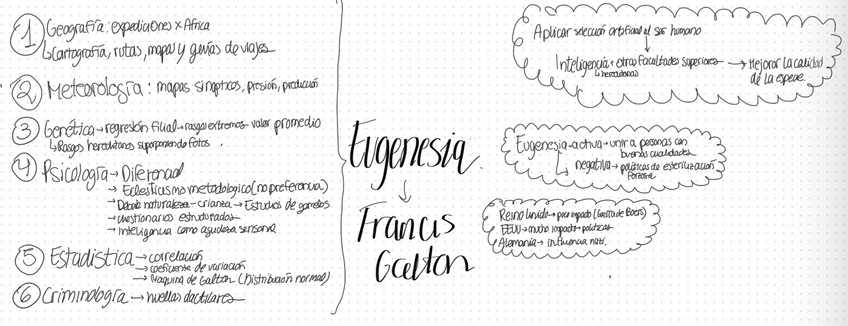 1 Geografía: expediciones x Africa
↳ Cartografía, rutas, mapas y guías de viajes
2 Meteorología: mapas sinopticos, presión, predicción
3 Genética → regresión filial → rasgos extremos - valor promedio
↳ Rasgos hereditarios superponiendo fotos.
4 Psicología → Diferencial
→ Eclesticismo metodologico (no preferencia)
→ Debate naturaleza - crianza → Estudios de gemelos
→ cuestionarios estructurados
→ Inteligencia como agudeza sensorial
5 Estadística → correlación
→ coeficiente de variación
→ Maquina de Galton (Distribución normal)
6 Criminología → huellas dactilares
Eugenesia
↓
Francis
Galton
Aplicar selección artificial al ser humano
↓
Inteligencia + otras facultades superiores → Mejorar la calidad
↳ hereditarias
de la especie.
Eugenesia - activa → unir a personas con
buenas cualidades
↳ negativa → políticas de esterilización
forzosa
Reino Unido → poco impacto (Guerra de Boers)
EEUU → mucho impacto → políticas
Alemania → influencia nazi.